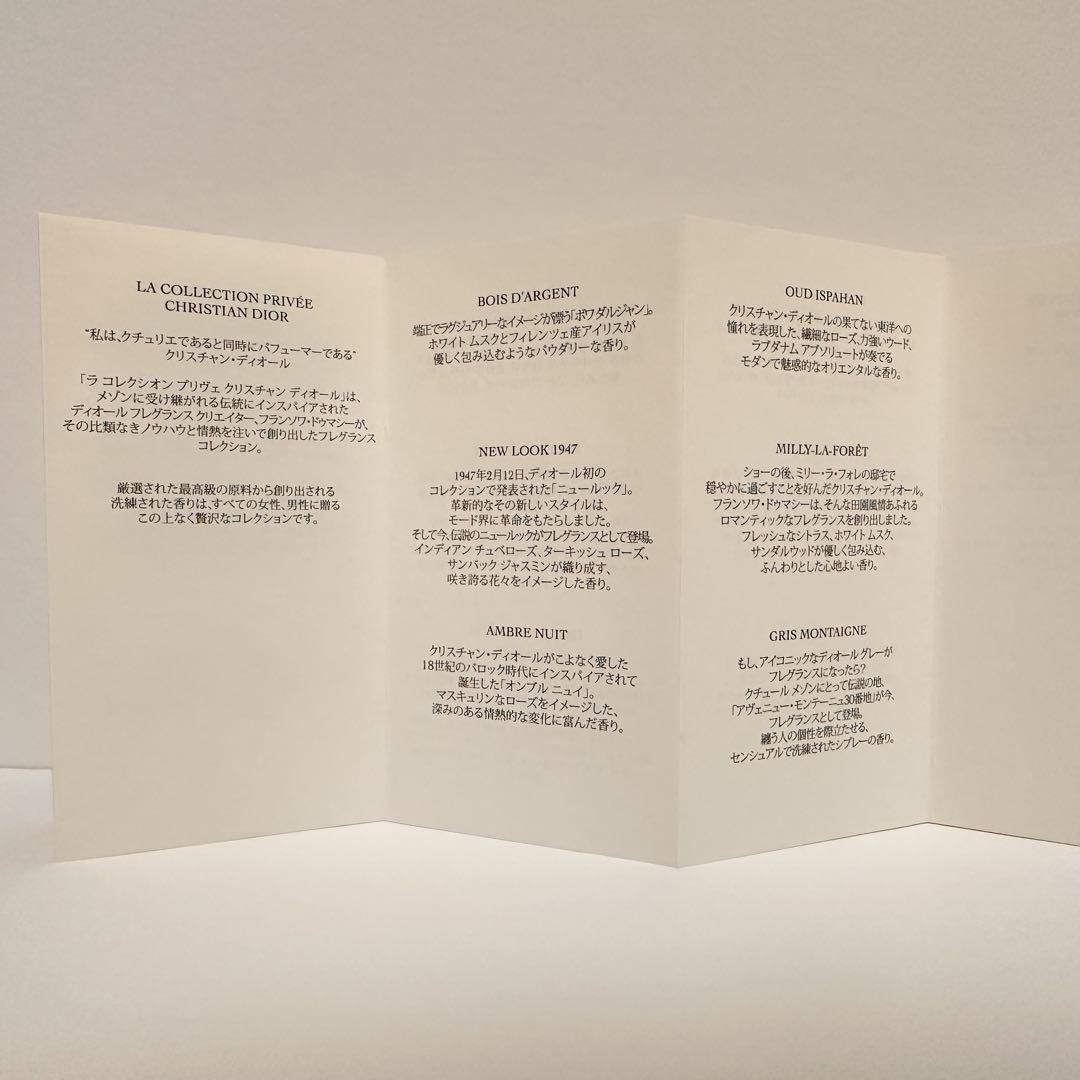 LA COLLECTION PRIVÉE
CHRISTIAN DIOR
“私は、クチュリエであると同時にパフューマーである”
クリスチャン・ディオール
「ラ コレクシオン プリヴェ クリスチャン ディオール」は、
メゾンに受け継がれる伝統にインスパイアされた
ディオール フレグランス クリエイター、フランソワ・ドゥマシーが、
その比類なきノウハウと情熱を注いで創り出したフレグランス
コレクション。
厳選された最高級の原料から創り出される
洗練された香りは、すべての女性、男性に贈る
この上なく贅沢なコレクションです。
BOIS D'ARGENT
端正でラグジュアリーなイメージが漂う「ボワダルジャン」。
ホワイト ムスクとフィレンツェ産アイリスが
優しく包み込むようなパウダリーな香り。
NEW LOOK 1947
1947年2月12日、ディオール初の
コレクションで発表された「ニュールック」。
革新的なその新しいスタイルは、
モード界に革命をもたらしました。
そして今、伝説のニュールックがフレグランスとして登場。
インディアン チュベローズ、ターキッシュ ローズ、
サンバック ジャスミンが織り成す、
咲き誇る花々をイメージした香り。
AMBRE NUIT
クリスチャン・ディオールがこよなく愛した
18世紀のバロック時代にインスパイアされて
誕生した「オンブル ニュイ」。
マスキュリンなローズをイメージした、
深みのある情熱的な変化に富んだ香り。
OUD ISPAHAN
クリスチャン・ディオールの果てない東洋への
憧れを表現した、繊細なローズ、力強いウード、
ラブダナム アブソリュートが奏でる
モダンで魅惑的なオリエンタルな香り。
MILLY-LA-FORÊT
ショーの後、ミリー・ラ・フォレの邸宅で
穏やかに過ごすことを好んだクリスチャン・ディオール。
フランソワ・ドゥマシーは、そんな田園風情あふれる
ロマンティックなフレグランスを創り出しました。
フレッシュなシトラス、ホワイト ムスク、
サンダルウッドが優しく包み込む、
ふんわりとした心地よい香り。
GRIS MONTAIGNE
もし、アイコニックなディオール グレーが
フレグランスになったら？
クチュール メゾンにとって伝説の地、
「アヴェニュー・モンテーニュ30番地」が今、
フレグランスとして登場。
纏う人の個性を際立たせる、
センシュアルで洗練されたシプレーの香り。